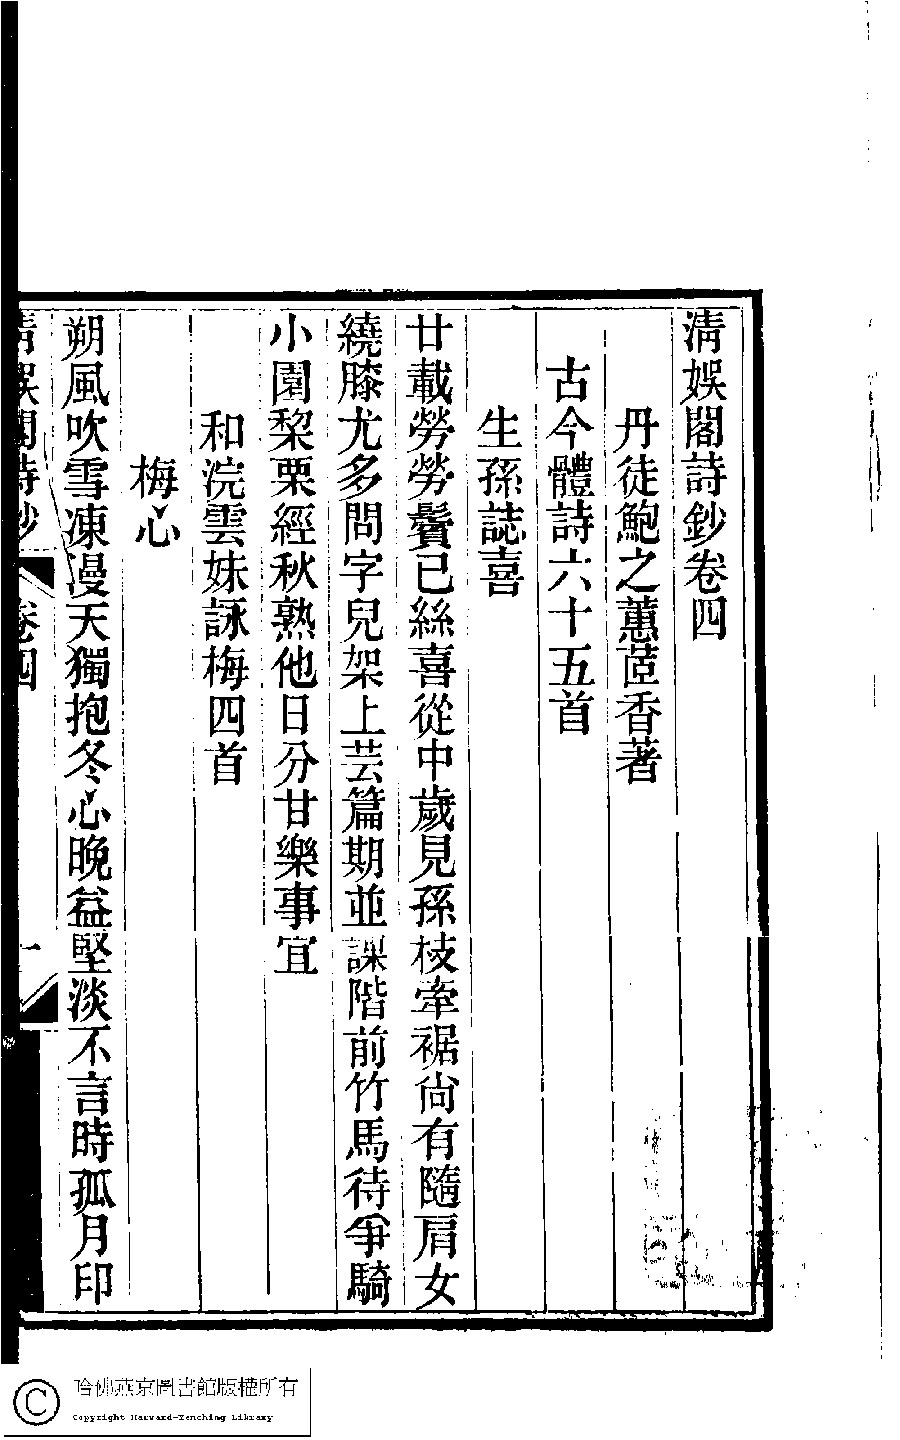 清娛閣詩鈔卷四
丹徒鮑之蕙茝香著
古今體詩六十五首
生孫誌喜
廿載勞勞鬢已絲喜從中歲見孫枝牽裾尙有隨肩女
繞膝尤多問字兒架上芸篇期並課階前竹馬待爭騎
小園棃栗經秋熟他日分甘樂事宜
和浣雲妹詠梅四首
梅心
朔風吹雪凍漫天獨抱冬心晚益堅淡不言時孤月印
清娛閣詩鈔 卷四 一
哈佛燕京圖書館版權所有
Copyright Harvard-Yenching Library